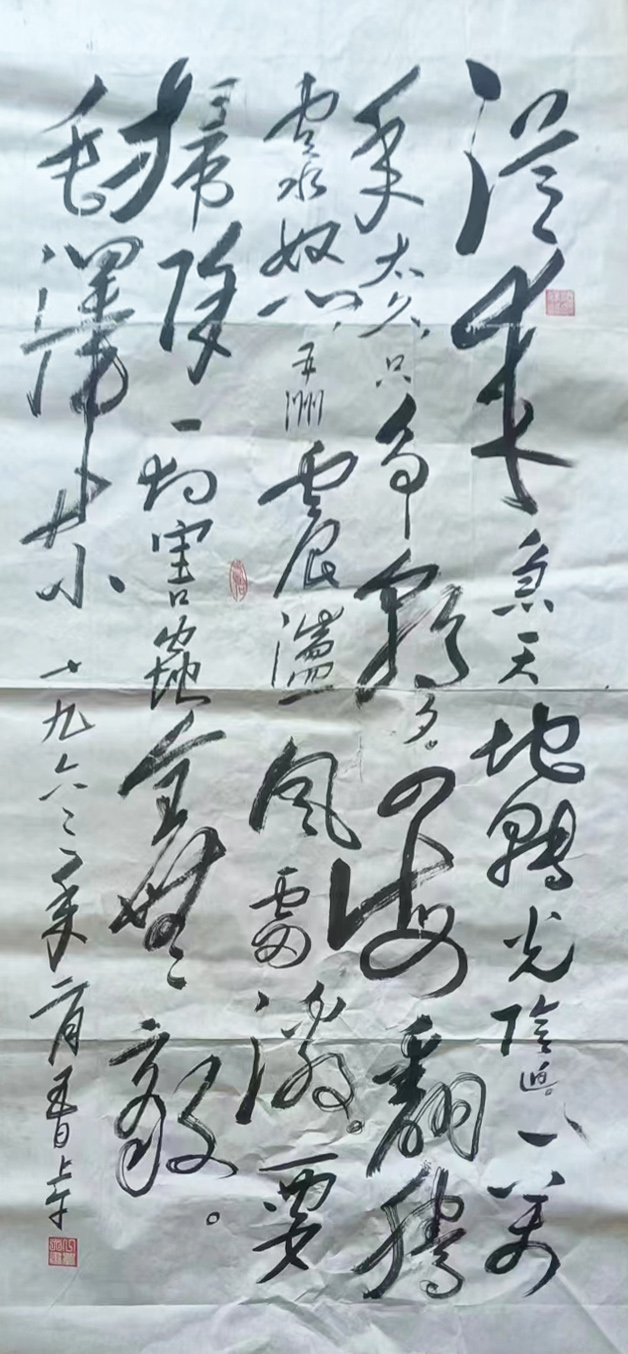 從来急天地轉光陰迫。一萬
年太久,只争朝夕。四海翻騰
雲水怒,五洲震盪風雷激。要
掃除一切害蟲全無敵。
毛澤東 一九六三年月日上午